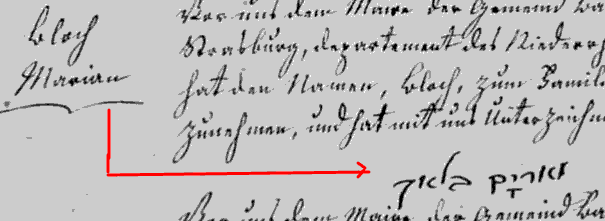 Bloch
Marian
Vor uns dem Maire der Gemeind Ba
Strasburg, departement des Niederrh
hat den Namen, Bloch, zum Famili
zunehmen, und hat mit uns Unterzeichn
בלאך
Vor uns dem Maire der Gemeind Ba